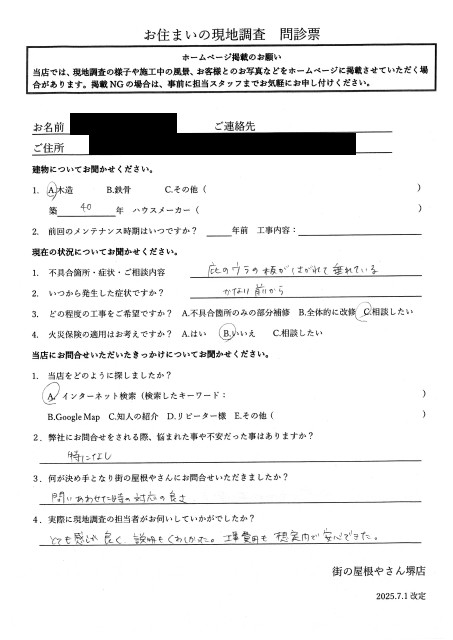 お住まいの現地調査 問診票
ホームページ掲載のお願い
当店では、現地調査の様子や施工中の風景、お客様とのお写真などをホームページに掲載させていただく場
合があります。掲載 NG の場合は、事前に担当スタッフまでお気軽にお申し付けください。
お名前 ご連絡先
ご住所
建物についてお聞かせください。
1. A.木造 B.鉄骨 C.その他（ ）
築 40 年 ハウスメーカー（ ）
2. 前回のメンテナンス時期はいつですか？ 年前 工事内容：
現在の状況についてお聞かせください。
1. 不具合箇所・症状・ご相談内容 庇のウラの板がはがれて垂れている
2. いつから発生した症状ですか？ かなり前から
3. どの程度の工事をご希望ですか？ A.不具合箇所のみの部分補修 B.全体的に改修 C.相談したい
4. 火災保険の適用はお考えですか？ A.はい B.いいえ C.相談したい
当店にお問合せいただいたきっかけについてお聞かせください。
1. 当店をどのように探しましたか？
A. インターネット検索（検索したキーワード： ）
B.Google Map C.知人の紹介 D.リピーター様 E.その他（ ）
2．弊社にお問合せをされる際、悩まれた事や不安だった事はありますか？
特になし
3．何が決め手となり街の屋根やさんにお問合せいただきましたか？
問いあわせた時の対応の良さ
4．実際に現地調査の担当者がお伺いしていかがでしたか？
とても感じ良く 説明もくわしかった。工事費用も想案内で安心できた。
街の屋根やさん堺店
2025.7.1 改定